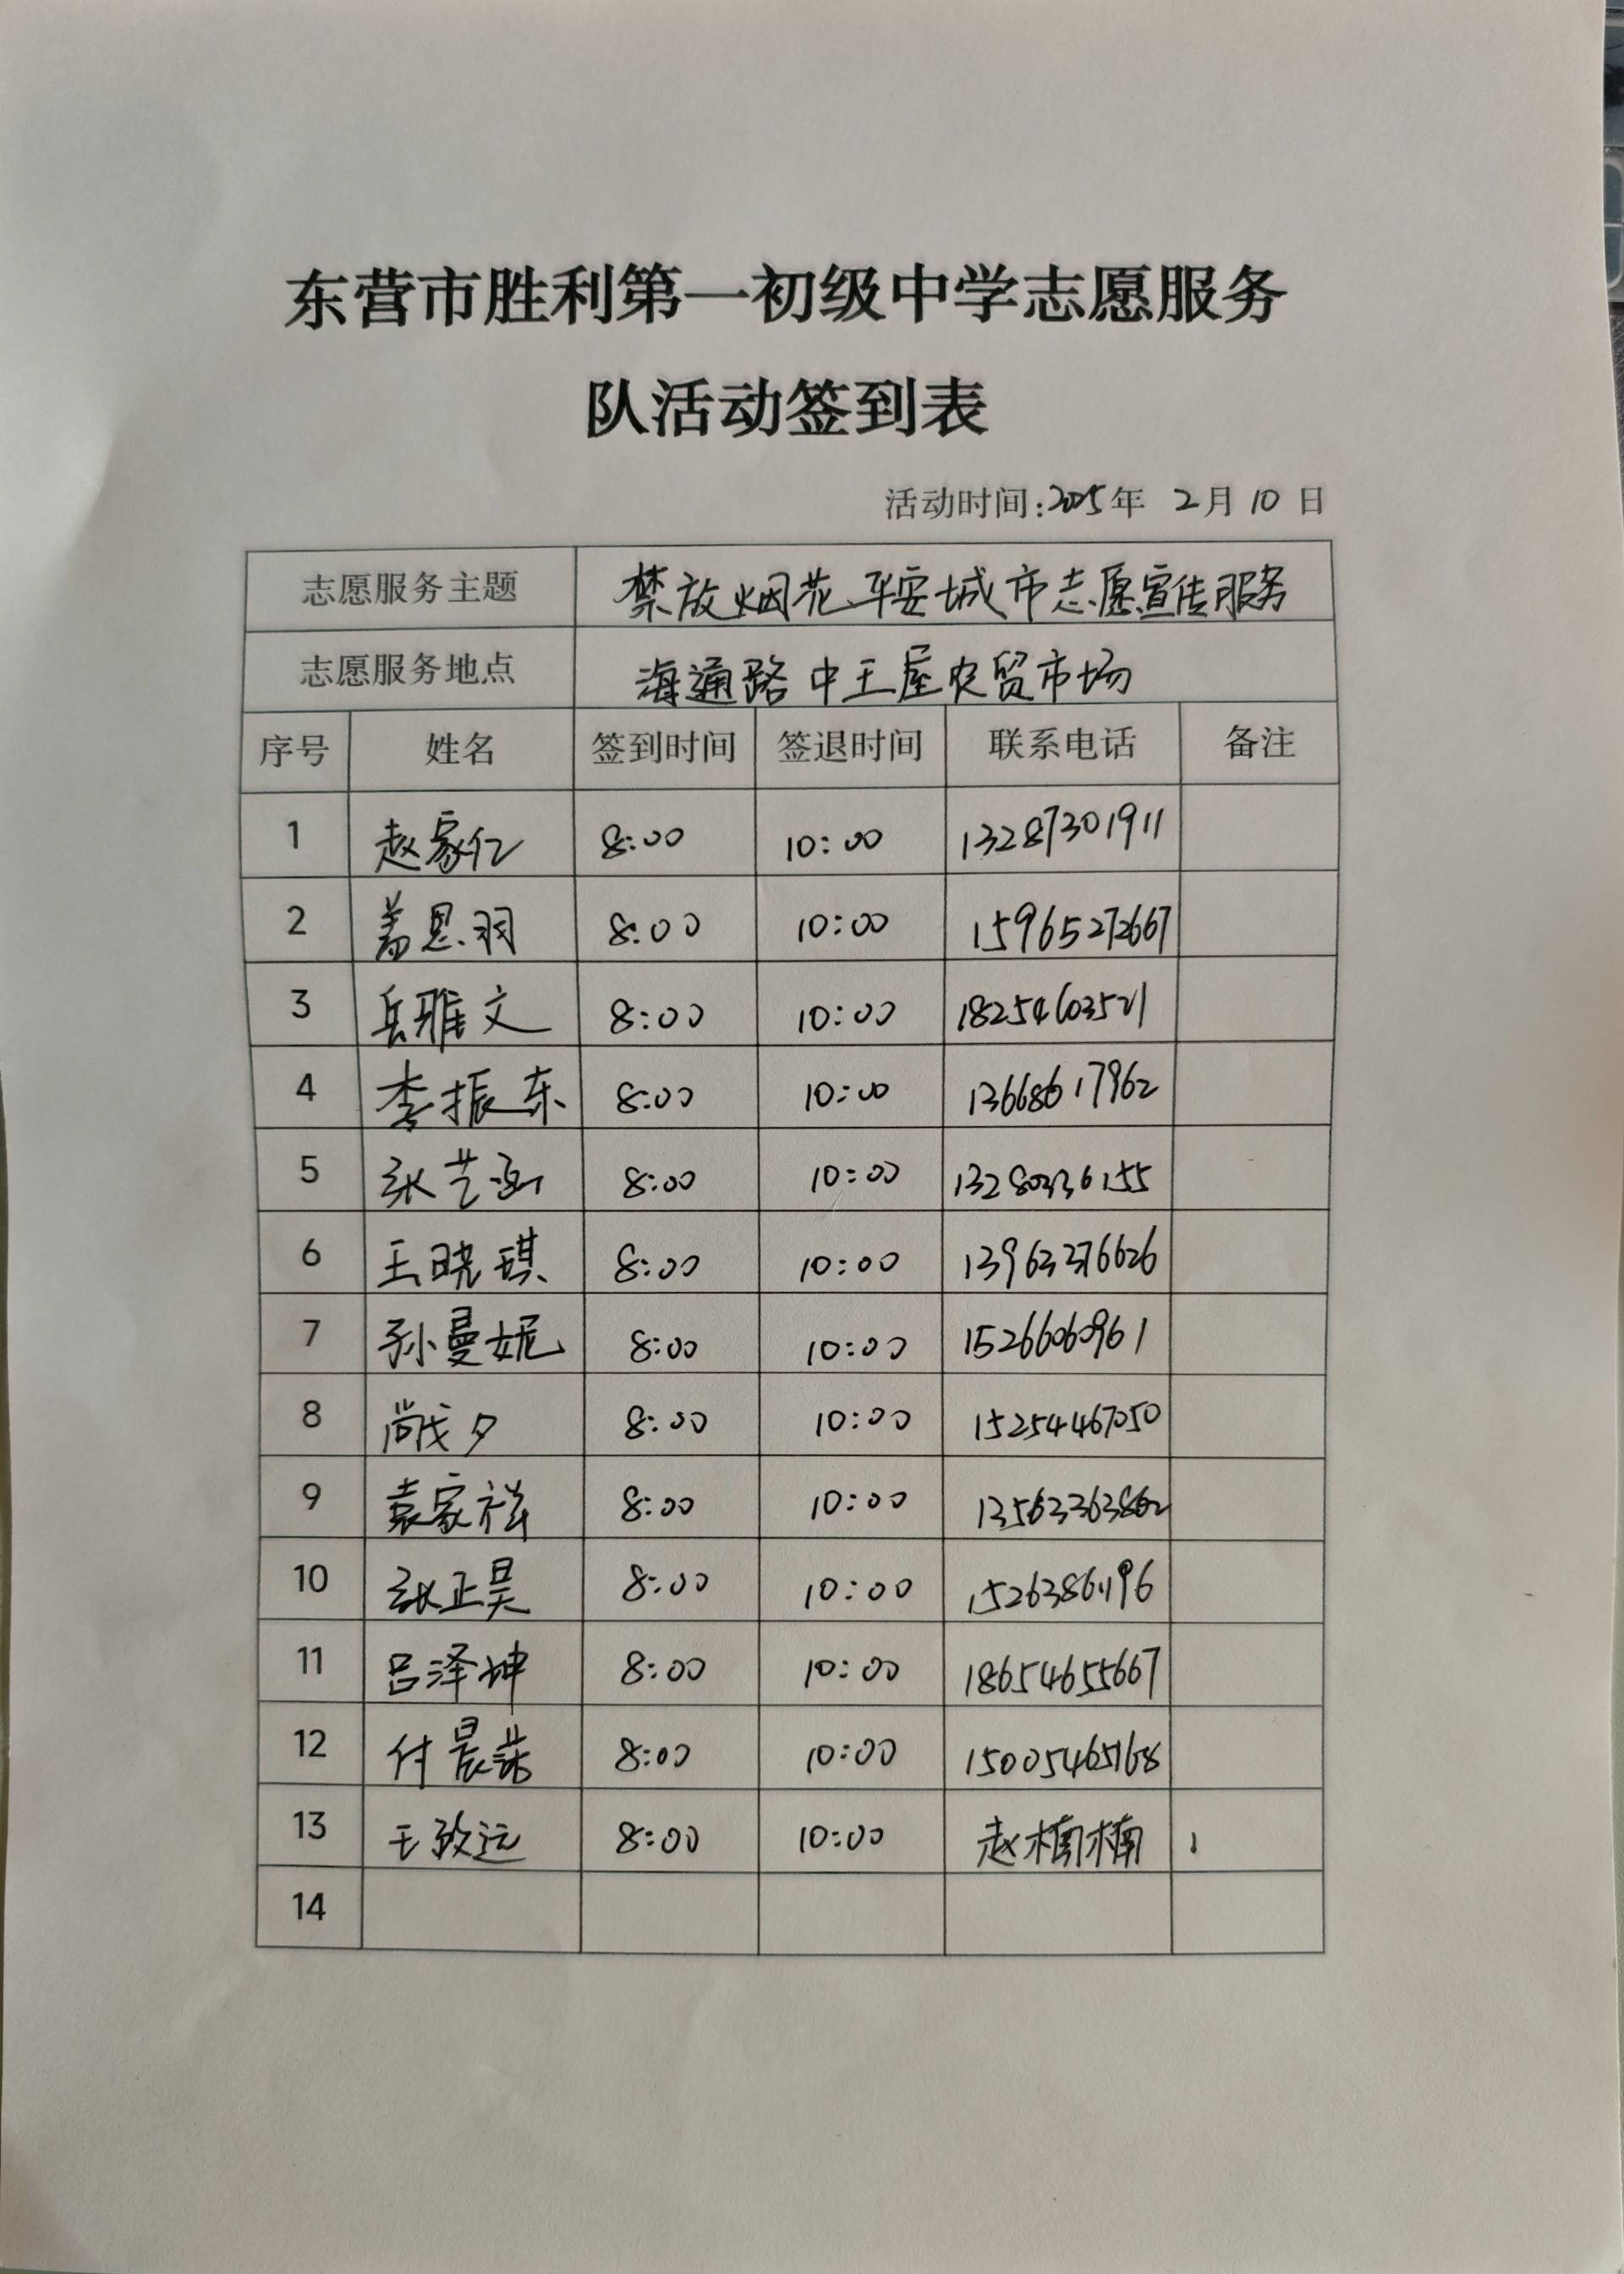 东营市胜利第一初级中学志愿服务
队活动签到表
活动时间:2025年 2月10日
志愿服务主题 禁放烟花、平安城市志愿宣传服务
志愿服务地点 海通路中王屋农贸市场
序号 姓名 签到时间 签退时间 联系电话 备注
1 赵家仁 8:00 10:00 13287301911
2 盖恩羽 8:00 10:00 15965272667
3 岳雅文 8:00 10:00 18254603521
4 李振东 8:00 10:00 13668617962
5 张艺涵 8:00 10:00 13280336155
6 王晓琪 8:00 10:00 13963376626
7 孙曼妮 8:00 10:00 15266060961
8 尚成夕 8:00 10:00 15254467050
9 袁家祥 8:00 10:00 13563363862
10 张正昊 8:00 10:00
11 吕泽坤 8:00 10:00 18654655667
12 付晨 8:00 10:00 15005465168
13 王致远 8:00 10:00 赵楠楠
14